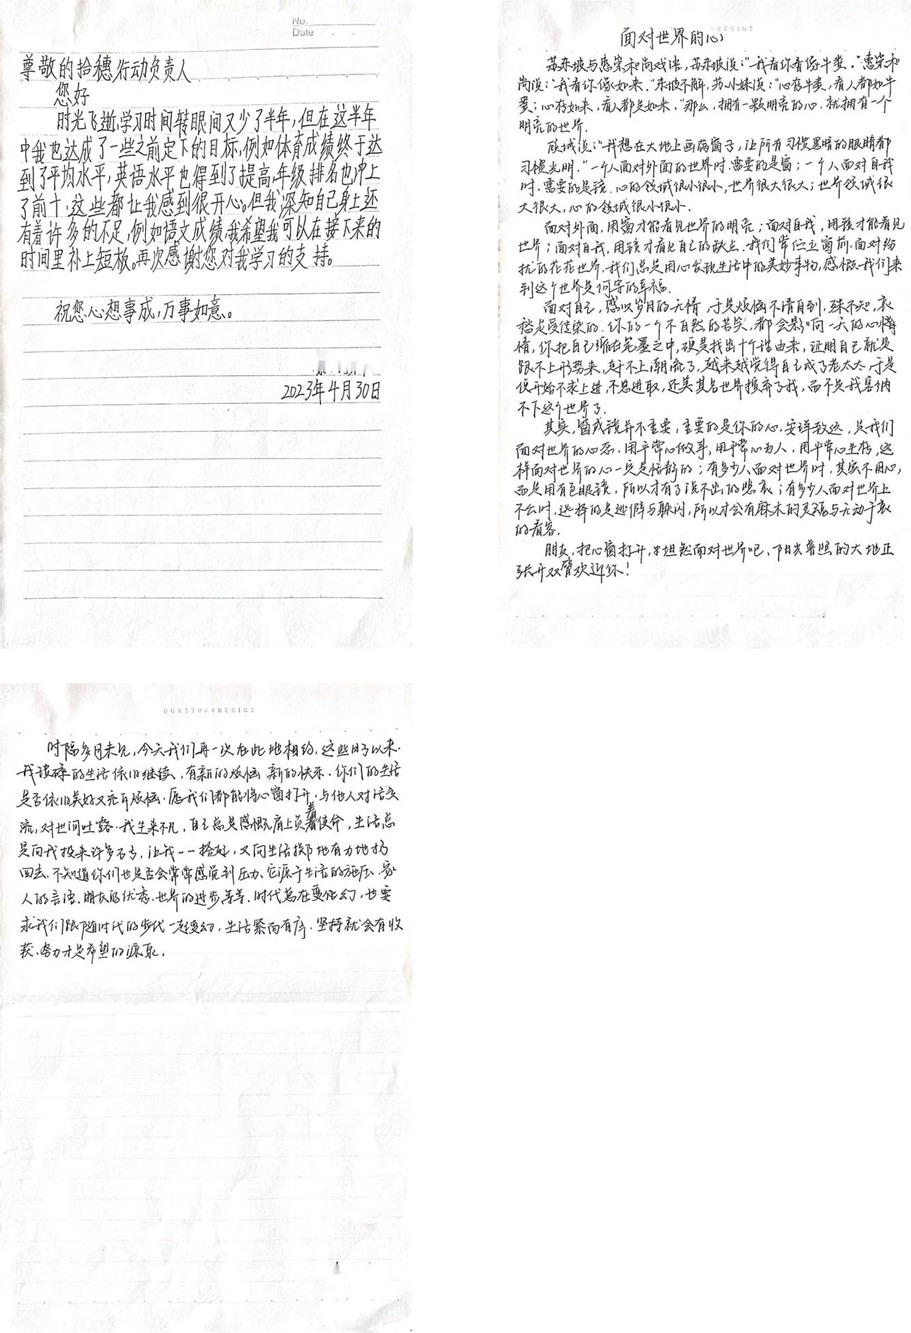 No.
Date
尊敬的拾穗行动负责人
您好
时光飞逝,学习时间转眼间又少了半年,但在这半年
中我也达成了一些之前定下的目标,例如体育成绩终于达
到了平均水平,英语水平也得到了提高,年级排名也冲上
了前十,这些都让我感到很开心。但我深知自己身上还
有着许多的不足,例如语文成绩,我希望我可以在接下来的
时间里补上短板。再次感谢您对我学习的支持。
祝您心想事成,万事如意。
2023年4月30日
面对世界的心
苏东坡与惠崇和尚戏语,苏东坡说:“我看你看像牛粪。”惠崇和
尚说:“我看你像如来。”东坡不解,苏小妹说:“心存牛粪,看人都如牛
粪;心存如来,看人都是如来。”那么,拥有一颗明亮的心,就拥有一个
明亮的世界.
顾城说:“我想在大地上画满窗子,让所有习惯黑暗的眼睛都
习惯光明.”一个人面对外面的世界时,需要的是窗;一个人面对自我
时,需要的是镜.心的领域很小很小,世界很大很大;世界领域很
大很大,心的领域很小很小.
面对外面,用窗才能看见世界的明亮;面对自我,用镜才能看见
世界;面对自我,用镜才看见自己的缺点.我们常伫立窗前,面对纷
扰的花花世界.我们总是用心发现生活中的美妙事物,感慨我们来
到这个世界是何等的幸福.
面对自己,感叹岁月的无情.于是烦恼不请自到.殊不知,衣
裳是受渲染的.你的一个不自然的苦笑,都会影响一天的心情
情,你把自己缩在笔墨之中,硬是找出十个理由来,证明自己就是
跟不上形势来,赶不上潮流了,越来越觉得自己成了老太太.于是
便开始不求上进,不思进取,还美其名世界摈弃了我,而不是我容纳
不下这个世界了.
其实,窗或镜并不重要,重要的是你的心,安详致远,是我们
面对世界的心态.用平常心做事,用平常心为人,用平常心生存,这
样面对世界的心一定是恬静的;有多少人面对世界时,其实不用心,
而是用有色眼镜,所以才有了说不出的悲哀;有多少人面对世界上
不公时,选择的是逃僻与躲闪,所以才会有麻木的灵魂与无动于衷
的看客.
朋友,把心窗打开,坦然面对世界吧,阳光普照的大地正
张开双臂欢迎你!
OURSTORYBEGINS
时隔多月未见,今天我们再一次在此地相约,这些日子以来.
我读研的生活依旧继续,有新的烦恼 新的快乐.你们的生活
是否依旧美好又充有烦恼.愿我们都能将心窗打开,与他人对话交
流,对世间吐露.我生来平凡,自己总是感慨肩上负着使命,生活总
是向我投来许多石子,让我一一拾起,又向生活掷地有力地扔
回去.不知道你们也是否会常常感觉到压力.它源于生活的施压、家
人的言语、朋友的优秀、世界的进步等等.时代总在变化幻,也要
求我们跟随时代的步伐一起变幻,生活紧而有序.坚持就会有收
获,努力才是希望的源泉.